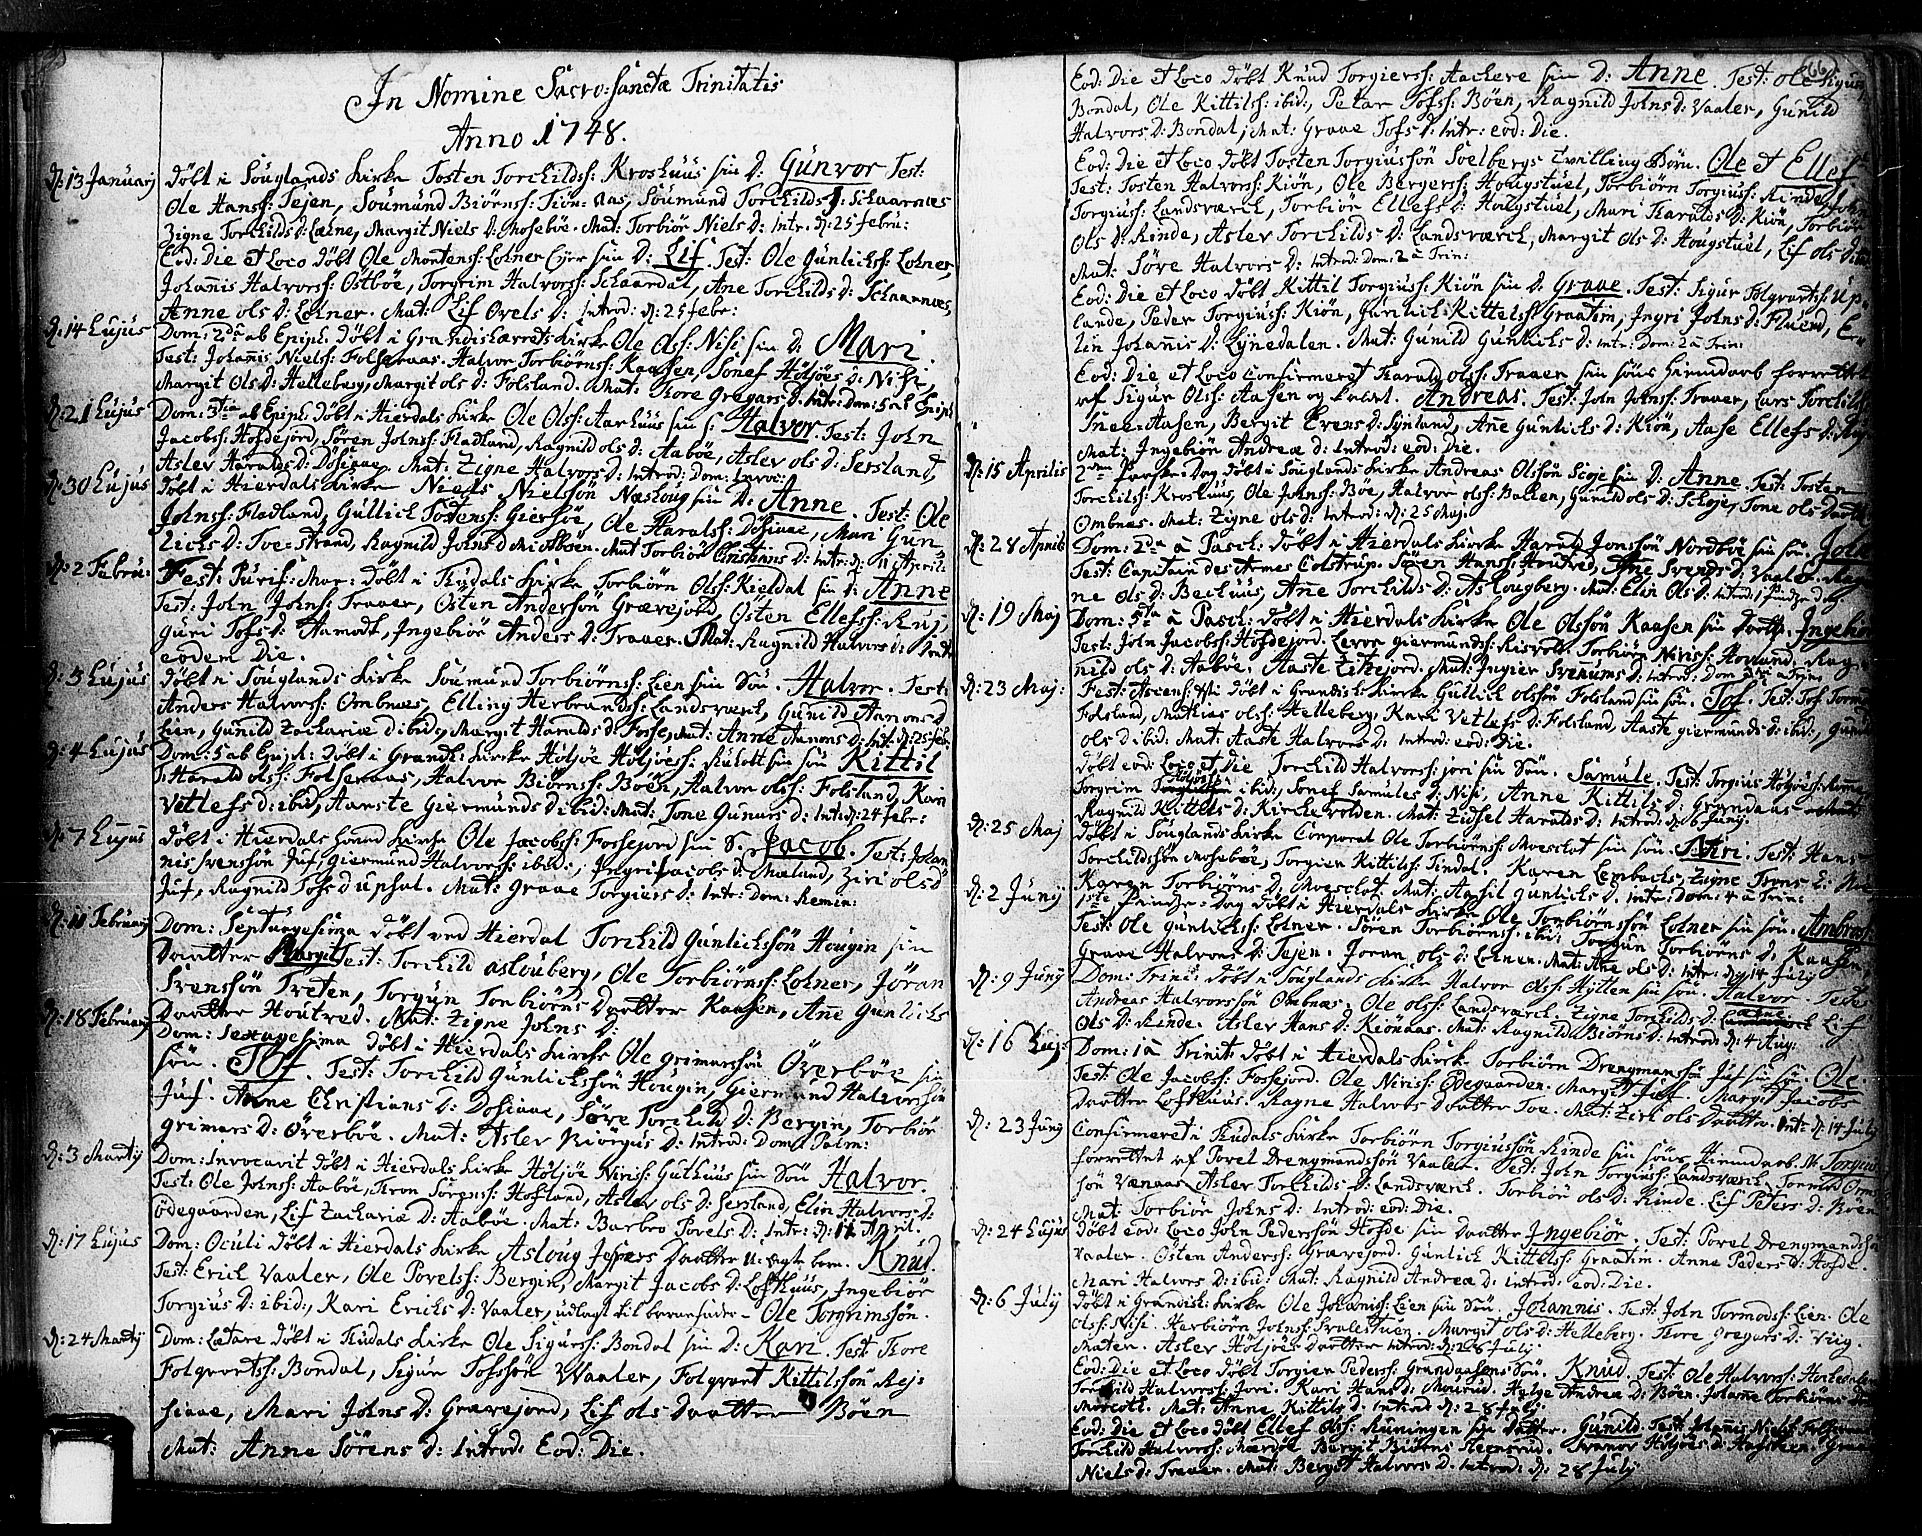 In Nomine Sacro-Sanctæ Trinitatis
Anno 1748.
d: 13 Januarij
Døbt i Souglands Kirke Tosten Torchildss: Kroshuus sin D: Gunvor Test:
Ole Hanss: Tejen, Soumund Biørnss: Tiønaas, Soumund Torchilds S: Schaarnæs
Zigne Torchilds D: Læhne, Margit Niels D: Mosebøe. Mat: Torbiør Niels D: Intr. d: 25 febru:
Eod: Die et Loco døbt Ole Mortenss: Lohner Ejer sin D: Lif. Test: Ole Gunlichss: Lohner
Johannis Halvorss: Østbøe, Torgrim Halvorss: Schaardal, Ane Torchilds D: Schaarnæs,
Anne ols D: Lohner. Mat: Lif Ovels D: Introd: d: 25 febr:
d: 14 Lujus
Dom: 2da ab Epiph: døbt i Grandsherrets Kirke Ole Olss: Nisi sin D: Mari.
Test: Johannis Nielss: Folseraas. Halvor Torbiørnss: Kaasen, Sonef Høljøes D: Nisi,
Margit Ols D: Helleberg, Margit ols D: Folsland. Mat: Thore Gregars D: Intr: Dom: 5 ab Epiph
d: 21 Lujus
Dom: 3tia ab Epiph: døbt i Hierdals Kirke Ole Olss: Aarhuus sin s: Halvor. Test: John
Jacobss: Hofdejord, Søren Johnss: Fladland, Ragnild ols D: Aabøe, Aslev ols D: Sersland,
Aslev Haralds D: Døsiaae. Mat: Zigne Halvors D: Introd: Dom: Invoc:
d: 30 Lujus
døbt i Hierdals Kirke Niels Nielssøn Næshoug sin D: Anne. Test: Ole
Johnss: Fladland, Gullich Tostenss: Giersøe, Ole Haralss: Døsiaae, Mari Gun
lichs D: Toe-strand, Ragnild Johns D Midbøen. Mat Torbiør Christians D: Intr: d: 11 April:
d: 2 Febru:
Fest: Purif: Mar: Døbt i Tudals Kirke Torbiørn Olss: Kieldal sin D: Anne
Test: John Johnss: Traaer, Østen Anderssøn Grævejord, Østen Ellefss: Ruj,
Guri Tofs D: Aamodt, Ingebiør Anders D: Traaer. Mat: Ragnild Halvors D: Intr:
eodem Die.
d: 3 Lujus
døbt i Souglands Kirke Soumund Torbiørnss: Lien sin Søn. Halvor. Test:
Anders Halvorss: Ombnæs, Elling Herbrandss: Landsværch, Gunild Aanons D
Lien, Gunild Zachariæ D ibid:, Margit Haralds D: Fosse, Mat: Anne Aanons D: Int: d: 25 feb:
d: 4 Lujus
Dom: 5 ab Epiph: døbt i Grandh: Kirke Høljøe Høljøess: Rukott sin søn Kittil
T: Harald olss: Folseraas, Halvor Biørnss: Bøen, Halvor olss: Folsland, Kari
Vetlefs D: ibid, Aanste Giermunds D ibid: Mat: Tone Gunars D: Int: d: 24 febr:
d: 7 Lujus
døbt i Hierdals Hoved Kirke Ole Jacobss: Fossejord sin S. Jacob. Test: Johan
nis Svenssøn Juf, Giermund Halvorss: ibid:, Ingri Jacobs D: Mæland, Ziri ols D
Juf, Ragnild Tofs D Upsal. Mat: Graae Torgiers D: Intr: Dom: Remin:
d: 11 Februarij
Dom: Septuagesima døbt ved Hierdal Torchild Gunlichssøn Hougin sin
Daatter Margit Test: Torchild Aslouberg, Ole Torbiørnss: Lohner, Jøran
Svenssøn Treten, Torgun Torbiørns Daatter Kaasen, Ane Gunlichs
Daatter Houtred. Mat: Zigne Johns D:
d: 18 Februarij
Dom: Sexagesima døbt i Hierdals Kirke Ole Grimarssøn Øverbøe sin
søn. Tof. Test: Torchild Gunlichssøn Hougin, Giermund Halvorssøn
Juf. Anne Christians D: Dosiaae, Søre Torchild D: Bergin, Torbiør
Grimars D: Øverbøe. Mat: Aslev Biorgus D: Introd: Dom: Palm:
d: 3 Martij
Dom: Invocavit døbt i Hierdals Kirke Høljøe Niriss: Guthuus sin Søn Halvor.
Test: Ole Johnss: Aabøe, Tron Sørenss: Hofland, Aslev ols D: Sersland, Elin Halvors D:
Ødegaarden, Lif Zachariæ D: Aabøe. Mat: Barbro Povels D: Intr: d: 11 April.
d: 17 Lujus
Dom: Oculi døbt i Hierdals Kirke Asloug Jespers Daatter Uægte barn. Knud.
Test: Erich Vaaler, Ole Povelss: Bergin, Margit Jacobs D: Lofthuus, Ingebiør
Torgius D: ibid:, Kari Erichs D: Vaaler, udlagt til barnefader - Ole Torgrimssøn.
d: 24 Martij
Dom: Lætare døbt i Tudals Kirke Ole Sigurss: Bondal sin D: Kari. Test Thore
Folqvortss: Bondal, Sigur Tofssøn Vaaler, Folqvort Kittilssøn Rej-
siaae, Mari Johns D: Grævejord, Lif ols Daatter Bøen
Mat: Anne Sørens D: Introd: Eod: Die.
66
Eod: Die et Loco døbt Knud Torgierss: Aachere sin D: Anne. Test: Ole Sigurs
Bondal, Ole Kittilss: ibid:, Petar Tofss: Bøen, Ragnild Johns D: Vaaler, Gunild
Halvors D: Bondal, Mat: Graae Tofs D: Intr: eod: Die.
Eod: Die et Loco døbt Tosten Torgiussøn Soelbergs Tvilling Børn. Ole et Ellef
Test: Tosten Halvorss: Kiøn, Ole Bergerss: Hougstuel, Torbiørn Torgiuss: Rinde, John
Torgiuss: Landsværch, Torbiør Ellefs D: Hougstuel, Mari Haralds D: Kiøn, Torbiør
Ols D: Rinde, Aslev Torchilds D: Landsværch, Margit Ols D: Hougstuel, Lif ols D:
Mat: Søre Halvors D: Introd: Dom: 2 a Trin:
Eod: Die et Loco døbt Kittil Torgiuss: Kiøn sin D. Graae. Test: Sigur Folqvartss: Up-
lande, Peder Torgiuss: Kiøn, Gunlich Kittelss: Graatim, Ingri Johns D: Fluerd, E-
lin Johannis D: Lynedalen. Mat: Gunild Gunlichs D: Intr: Dom: 2 a Trin:
Eod: Die et Loco Confirmeret Harald Olss: Traaer sin søns Hiemdaab forrettet
af Sigur Olss: Aasen og kaldet. Andreas. Test: John Johnss: Traaer, Lars Torchilss
Snee-Aasen, Bergit Evens D: Synland, Ane Gunlichs D: Kiøn, Aase Ellefs D: Ruj
Mat: Ingebiør Andreæ D: Introd: eod: Die.
d: 15 Aprilis
2den Paaske-Dag døbt i Souglands Kirke Andreas Olssøn Scoje sin D: Anne. Test: Tosten
Torchilss: Kroshuus, Ole Johnss: Bøe, Halvor olss: Bakken, Gunild ols D: Schoje, Tone ols Daatt:
Ombnæs. Mat: Zigne ols D: Introd: d: 25 Maj.
d: 28 Aprilis
Dom: 2da a Pasch: døbt i Hierdals Kirke Harald Jonssøn Nordbøe sin søn. John
Test: Capitain des Armes Colstrup. Søren Hanss: Houtred, Ane Svends D: Vaaler. Rag
ne Ols D: Bechuus, Ane Torchilds D: Aslougberg. Mat: Elin Ols D: Introd: 1 Pindse dag
d: 19 Maj
Dom: 5ta a Pasch: døbt i Hierdals Kirke Ole Olssøn Kaasen sin Daatt: Ingebiør
Test: John Jacobss: Hofdejord. Levor Giermundss: Risvold. Torbiørn Niriss: Hovland, Rag-
nild ols D: Aabøe, Aaste Zikejord. Mat: Ingier Svenums D: Introd: Dom a Trin
d: 23 Maj:
Fest: Ascens: Xti døbt i Grandsh: Kirke Gullich olssøn Folsland sin søn. Tof. Test: Tof Tormo
Folsland, Mathias olss: Helleberg, Kari Vetlefs D: Folsland, Aaste Giermunds D: ibid:, Gunild
ols D ibid. Mat: Aaste Halvors D: Introd: eod: Die.
døbt eod: Loco et Die Torchild Halvorss: Jori sin Søn. Samule. Test: Torgius Høljøess:
Torgrim Høljøess: ibid:, Sonef Samules D: Nisi, Anne Kittils D: Grandaas
Ragnild Kittels D: Kirchevolden. Mat: Zidsel Haralds D: Introd: d: 6 Junij:
d: 25 Maj
døbt i Souglands Kirke Corporal Ole Torbiørnss: Moesclot sin søn. Test: Hans
Torchildssøn Mosebøe, Torgien Kittilss: Tindal. Karen Lembachs, Zigne Trons D:
Karen Torbiørns D: Moesclot. Mat: Aashil Gunlichs D. Intr: Dom: 4 a Trin:
d: 2 Junij
1ste Pindse-Dag døbt i Hierdals Kirke Ole Torbiørnssøn Lohner sin søn. Ambros:
Test: Ole Gunlichss: Lohner. Søren Torbiørnss: ibid: Torgun Torbiørns D: Kaasen,
Graae Halvors D: Tejen. Joran ols D: Lohner. Mat: Ane ols D: Intr: d: 14 July
d: 9 Junij
Dom: Trinit: døbt i Souglands Kirke Halvor Olss: Hytten sin søn. Halvor. Test
Andreas Halvorssøn Ombnæs. Ole olss: Landsværch. Zigne Torchilds D: Læhne Lif
Ols D: Rinde. Aslev Hans D: Kiønaas. Mat: Ragnild Biørns D: Introd: d: 4 Aug:
d: 16 Luj:
Dom: 1 a Trinit: døbt i Hierdals Kirke Torbiørn Drengmanssøn Juf sin søn Ole.
Test: Ole Jacobss: Fossejord. Ole Niriss: Ødegaarden. Margit Juf. Margit Jacobs
Daatter Lofthuus. Ragne Halvors Daatter Toe. Mat: Ziri ols Daatter. Int: d: 14 July
d: 23 Junij
Confirmeret i Tudals Kirke Torbiørn Torgiussøn Rinde sin søns Hiemdaab. N: Torgius
forrettet af Povel Drengmandssøn Vaaler. Test: John Torgiuss: Landsværch. Tormod Orms
søn Vænaas, Aslev Torchilds D: Landsværch. Torbiør ols D: Rinde. Lif Peters D: Bøen
Mat Torbiør Johns D: Introd: eod: Die.
d: 24 Lujus
døbt eod: Loco John Pederssøn Hofde sin Daatter Ingebiør. Test: Povel Drengmandssøn
Vaaler. Østen Anderss: Grævejord. Gunlich Kittelss: Graatim. Anne Peders D: Hofde.
Mari Halvors D: ibid: Mat: Ragnild Andreæ D: Introd: eod: Die.
d: 6 July
døbt i Grandsh: Kirke Ole Johanniss: Lien sin Søn. Johannis. Test: John Tormodss: Lien. Ole
Olss: Nisi. Herbiørn Johnss: Svalestuen. Margit ols D: Helleberg. Thore Gregars D: Viig.
Mater. Aslev Høljøes Daatter Introd: d: 28 July.
Eod: Die et Loco døbt Torgier Pederss: Grandaasens Søn. Knud. Test: Ole Halvorss:
Torchild Halvorss: Jori. Kari Hans D: Hælge Andreæ D: Bøen. Johanne Torbiørns D
Mat: Anne Kittils D: Introd d: 28 July
Eod: Die et Loco døbt Ellef Olss: Runingen sin Datter. Gunild. Test: Johannis Nielss
Torchild Halvorss: Mærøe. Bergit Biørns Svanor Høljøes D:
Niels D: Traaer. Mat: Bergit Halvors D. Introd: d: 28 July